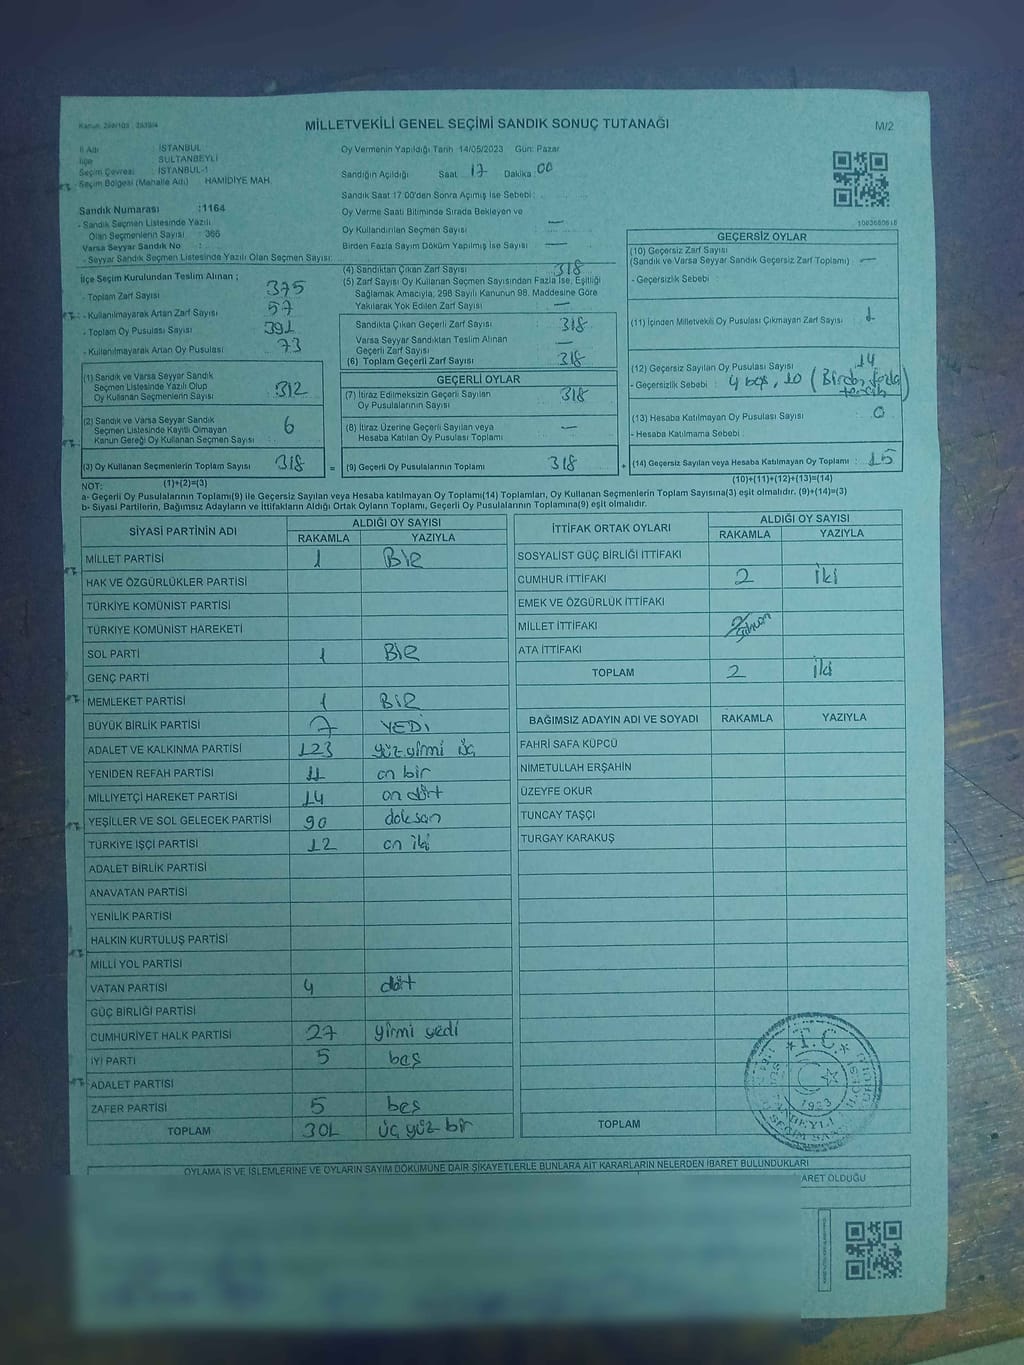 Kanun: 298/105 - 2839/4
MİLLETVEKİLİ GENEL SEÇİMİ SANDIK SONUÇ TUTANAĞI
M/2
İl Adı : İSTANBUL
İlçe : SULTANBEYLİ
Seçim Çevresi : İSTANBUL-1
Seçim Bölgesi (Mahalle Adı) : HAMİDİYE MAH.
Sandık Numarası :1164
- Sandık Seçmen Listesinde Yazılı
Olan Seçmenlerin Sayısı : 366
Varsa Seyyar Sandık No :
- Seyyar Sandık Seçmen Listesinde Yazılı Olan Seçmen Sayısı:
Oy Vermenin Yapıldığı Tarih 14/05/2023 Gün: Pazar
Sandığın Açıldığı Saat 17 Dakika : 00
Sandık Saat 17:00'den Sonra Açılmış İse Sebebi :
Oy Verme Saati Bitiminde Sırada Bekleyen ve
Oy Kullandırılan Seçmen Sayısı : —
Birden Fazla Sayım Döküm Yapılmış İse Sayısı : —
1083680618
İlçe Seçim Kurulundan Teslim Alınan ;
- Toplam Zarf Sayısı : 375
- Kullanılmayarak Artan Zarf Sayısı : 57
- Toplam Oy Pusulası Sayısı : 391
- Kullanılmayarak Artan Oy Pusulası : 73
(1) Sandık ve Varsa Seyyar Sandık
Seçmen Listesinde Yazılı Olup
Oy Kullanan Seçmenlerin Sayısı : 312
(2) Sandık ve Varsa Seyyar Sandık
Seçmen Listesinde Kayıtlı Olmayan
Kanun Gereği Oy Kullanan Seçmen Sayısı : 6
(3) Oy Kullanan Seçmenlerin Toplam Sayısı : 318
(1)+(2)=(3)
(4) Sandıktan Çıkan Zarf Sayısı : 318
(5) Zarf Sayısı Oy Kullanan Seçmen Sayısından Fazla İse, Eşitliği
Sağlamak Amacıyla, 298 Sayılı Kanunun 98. Maddesine Göre
Yakılarak Yok Edilen Zarf Sayısı : —
Sandıkta Çıkan Geçerli Zarf Sayısı : 318
Varsa Seyyar Sandıktan Teslim Alınan
Geçerli Zarf Sayısı : —
(6) Toplam Geçerli Zarf Sayısı : 318
GEÇERLİ OYLAR
(7) İtiraz Edilmeksizin Geçerli Sayılan
Oy Pusulalarının Sayısı : 318
(8) İtiraz Üzerine Geçerli Sayılan veya
Hesaba Katılan Oy Pusulası Toplamı : —
= (9) Geçerli Oy Pusulalarının Toplamı : 318
GEÇERSİZ OYLAR
(10) Geçersiz Zarf Sayısı
(Sandık ve Varsa Seyyar Sandık Geçersiz Zarf Toplamı) : —
- Geçersizlik Sebebi :
(11) İçinden Milletvekili Oy Pusulası Çıkmayan Zarf Sayısı : 1
(12) Geçersiz Sayılan Oy Pusulası Sayısı : 14
- Geçersizlik Sebebi : 4 boş, 10 (Birden fazla
tercih)
(13) Hesaba Katılmayan Oy Pusulası Sayısı : 0
- Hesaba Katılmama Sebebi :
+ (14) Geçersiz Sayılan veya Hesaba Katılmayan Oy Toplamı : 15
(10)+(11)+(12)+(13)=(14)
NOT:
a- Geçerli Oy Pusulalarının Toplamı(9) ile Geçersiz Sayılan veya Hesaba katılmayan Oy Toplamı(14) Toplamları, Oy Kullanan Seçmenlerin Toplam Sayısına(3) eşit olmalıdır. (9)+(14)=(3)
b- Siyasi Partilerin, Bağımsız Adayların ve İttifakların Aldığı Oyların Toplamı, Geçerli Oy Pusulalarının Toplamına(9) eşit olmalıdır.
SİYASİ PARTİNİN ADI ALDIĞI OY SAYISI
RAKAMLA YAZIYLA
MİLLET PARTİSİ 1 BİR
HAK VE ÖZGÜRLÜKLER PARTİSİ
TÜRKİYE KOMÜNİST PARTİSİ
TÜRKİYE KOMÜNİST HAREKETİ
SOL PARTİ 1 BİR
GENÇ PARTİ
MEMLEKET PARTİSİ 1 BİR
BÜYÜK BİRLİK PARTİSİ 7 YEDİ
ADALET VE KALKINMA PARTİSİ 123 yüz yirmi üç
YENİDEN REFAH PARTİSİ 11 on bir
MİLLİYETÇİ HAREKET PARTİSİ 14 on dört
YEŞİLLER VE SOL GELECEK PARTİSİ 90 doksan
TÜRKİYE İŞÇİ PARTİSİ 12 on iki
ADALET BİRLİK PARTİSİ
ANAVATAN PARTİSİ
YENİLİK PARTİSİ
HALKIN KURTULUŞ PARTİSİ
MİLLİ YOL PARTİSİ
VATAN PARTİSİ 4 dört
GÜÇ BİRLİĞİ PARTİSİ
CUMHURİYET HALK PARTİSİ 27 yirmi yedi
İYİ PARTİ 5 beş
ADALET PARTİSİ
ZAFER PARTİSİ 5 beş
TOPLAM 301 üç yüz bir
İTTİFAK ORTAK OYLARI ALDIĞI OY SAYISI
RAKAMLA YAZIYLA
SOSYALİST GÜÇ BİRLİĞİ İTTİFAKI
CUMHUR İTTİFAKI 2 iki
EMEK VE ÖZGÜRLÜK İTTİFAKI
MİLLET İTTİFAKI
ATA İTTİFAKI
TOPLAM 2 iki
BAĞIMSIZ ADAYIN ADI VE SOYADI RAKAMLA YAZIYLA
FAHRİ SAFA KÜPCÜ
NİMETULLAH ERŞAHİN
ÜZEYFE OKUR
TUNCAY TAŞÇI
TURGAY KARAKUŞ
TOPLAM
T.C.
1923
OYLAMA İŞ VE İŞLEMLERİNE VE OYLARIN SAYIM DÖKÜMÜNE DAİR ŞİKAYETLERLE BUNLARA AİT KARARLARIN NELERDEN İBARET BULUNDUKLARI
ARET OLDUĞU